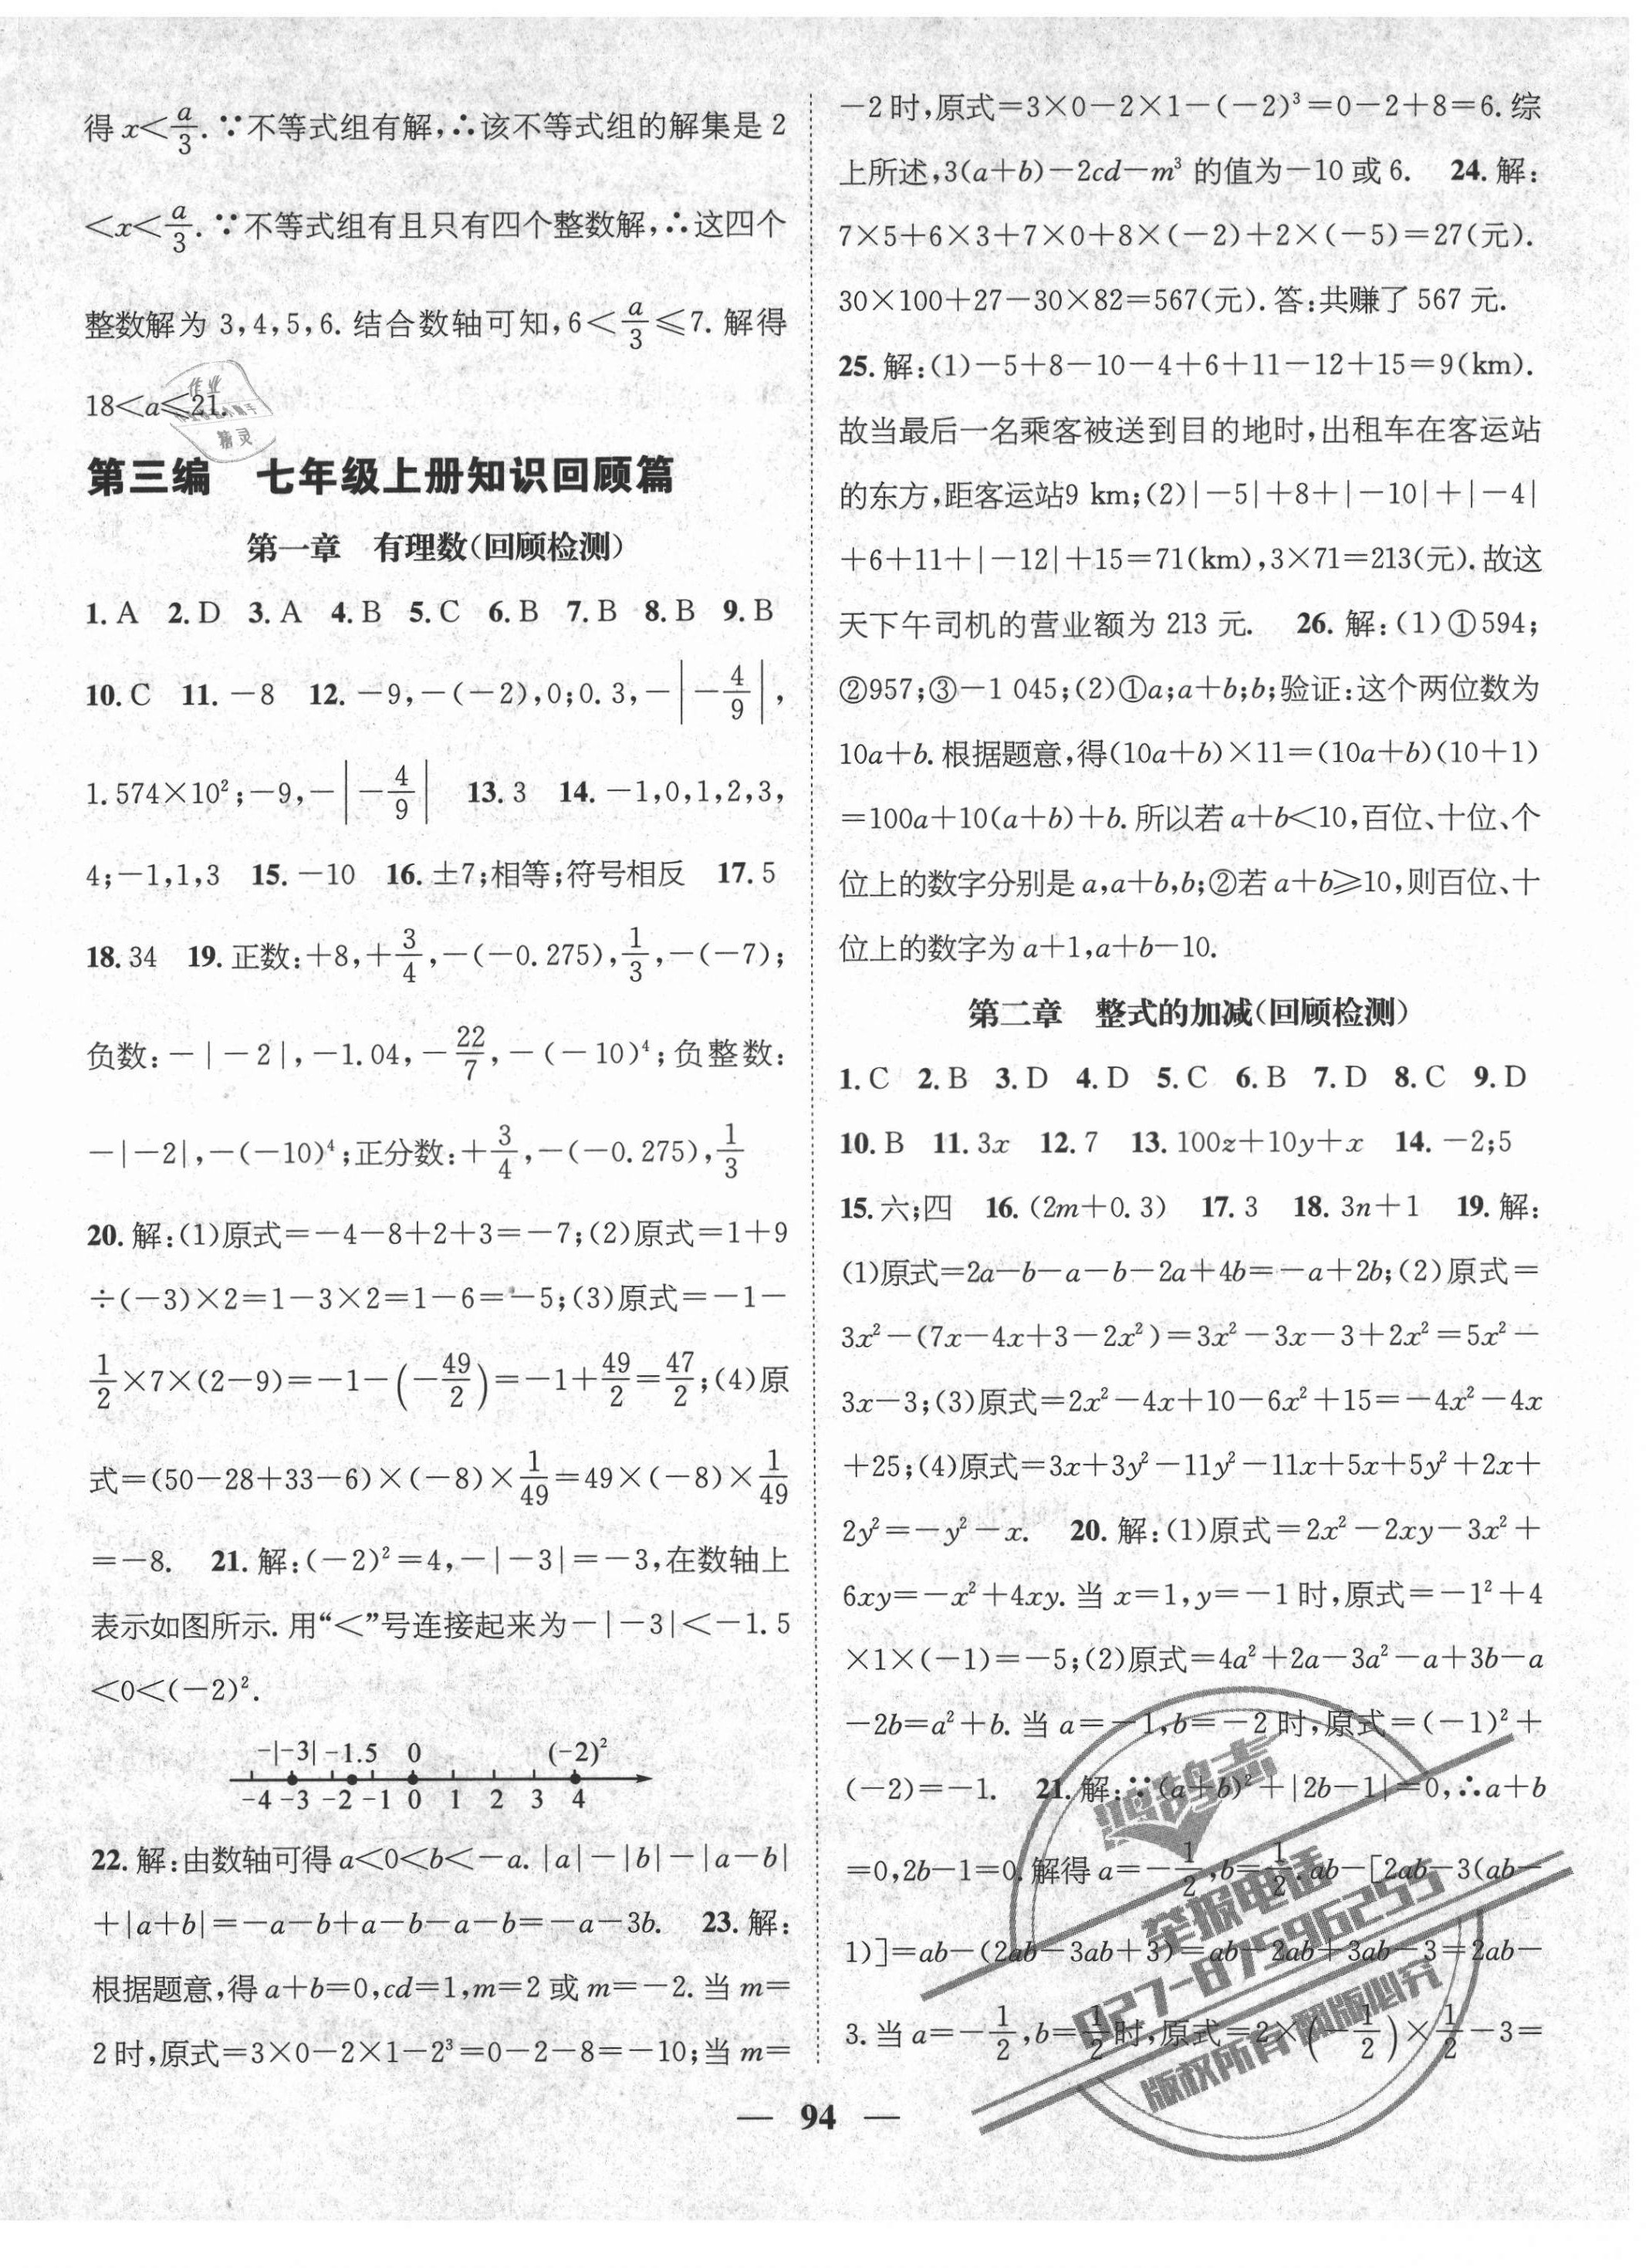 得 x<a/3.∵不等式组有解,∴该不等式组的解集是 2
<x<a/3.∵不等式组有且只有四个整数解,∴这四个
整数解为 3,4,5,6. 结合数轴可知,6<a/3≤7. 解得
18<a≤21.
作业
精灵
第三编 七年级上册知识回顾篇
第一章 有理数(回顾检测)
1. A 2. D 3. A 4. B 5. C 6. B 7. B 8. B 9. B
10. C 11. −8 12. −9,−(−2),0;0.3,−|−4/9|,
1.574×10²;−9,−|−4/9| 13. 3 14. −1,0,1,2,3,
4;−1,1,3 15. −10 16. ±7;相等;符号相反 17. 5
18. 34 19. 正数:+8,+3/4,−(−0.275),1/3,−(−7);
负数:−|−2|,−1.04,−22/7,−(−10)⁴;负整数:
−|−2|,−(−10)⁴;正分数:+3/4,−(−0.275),1/3
20. 解:(1)原式=−4−8+2+3=−7;(2)原式=1+9
÷(−3)×2=1−3×2=1−6=−5;(3)原式=−1−
1/2×7×(2−9)=−1−(−49/2)=−1+49/2=47/2;(4)原
式=(50−28+33−6)×(−8)×1/49=49×(−8)×1/49
=−8. 21. 解:(−2)²=4,−|−3|=−3,在数轴上
表示如图所示. 用“<”号连接起来为−|−3|<−1.5
<0<(−2)².
−|−3| −1.5 0 (−2)²
−4 −3 −2 −1 0 1 2 3 4
22. 解:由数轴可得 a<0<b<−a. |a|−|b|−|a−b|
+|a+b|=−a−b+a−b−a−b=−a−3b. 23. 解:
根据题意,得 a+b=0,cd=1,m=2 或 m=−2. 当 m=
2 时,原式=3×0−2×1−2³=0−2−8=−10;当 m=
−2 时,原式=3×0−2×1−(−2)³=0−2+8=6. 综
上所述,3(a+b)−2cd−m³ 的值为−10 或 6. 24. 解:
7×5+6×3+7×0+8×(−2)+2×(−5)=27(元).
30×100+27−30×82=567(元). 答:共赚了 567 元.
25. 解:(1)−5+8−10−4+6+11−12+15=9(km).
故当最后一名乘客被送到目的地时,出租车在客运站
的东方,距客运站9 km;(2)|−5|+8+|−10|+|−4|
+6+11+|−12|+15=71(km),3×71=213(元). 故这
天下午司机的营业额为 213 元. 26. 解:(1)①594;
②957;③−1 045;(2)①a;a+b;b;验证:这个两位数为
10a+b. 根据题意,得(10a+b)×11=(10a+b)(10+1)
=100a+10(a+b)+b. 所以若 a+b<10,百位、十位、个
位上的数字分别是 a,a+b,b;②若 a+b≥10,则百位、十
位上的数字为 a+1,a+b−10.
第二章 整式的加减(回顾检测)
1. C 2. B 3. D 4. D 5. C 6. B 7. D 8. C 9. D
10. B 11. 3x 12. 7 13. 100z+10y+x 14. −2;5
15. 六;四 16. (2m+0.3) 17. 3 18. 3n+1 19. 解:
(1)原式=2a−b−a−b−2a+4b=−a+2b;(2)原式=
3x²−(7x−4x+3−2x²)=3x²−3x−3+2x²=5x²−
3x−3;(3)原式=2x²−4x+10−6x²+15=−4x²−4x
+25;(4)原式=3x+3y²−11y²−11x+5x+5y²+2x+
2y²=−y²−x. 20. 解:(1)原式=2x²−2xy−3x²+
6xy=−x²+4xy. 当 x=1,y=−1 时,原式=−1²+4
×1×(−1)=−5;(2)原式=4a²+2a−3a²−a+3b−a
−2b=a²+b. 当 a=−1,b=−2 时,原式=(−1)²+
(−2)=−1. 21. 解:∵(a+b)²+|2b−1|=0,∴a+b
=0,2b−1=0. 解得 a=−1/2,b=1/2. ab−[2ab−3(ab−
1)]=ab−(2ab−3ab+3)=ab−2ab+3ab−3=2ab−
3. 当 a=−1/2,b=1/2时,原式=2×(−1/2)×1/2−3=
鸿鹄志
举报电话
027-87596255
版权所有 翻版必究
— 94 —